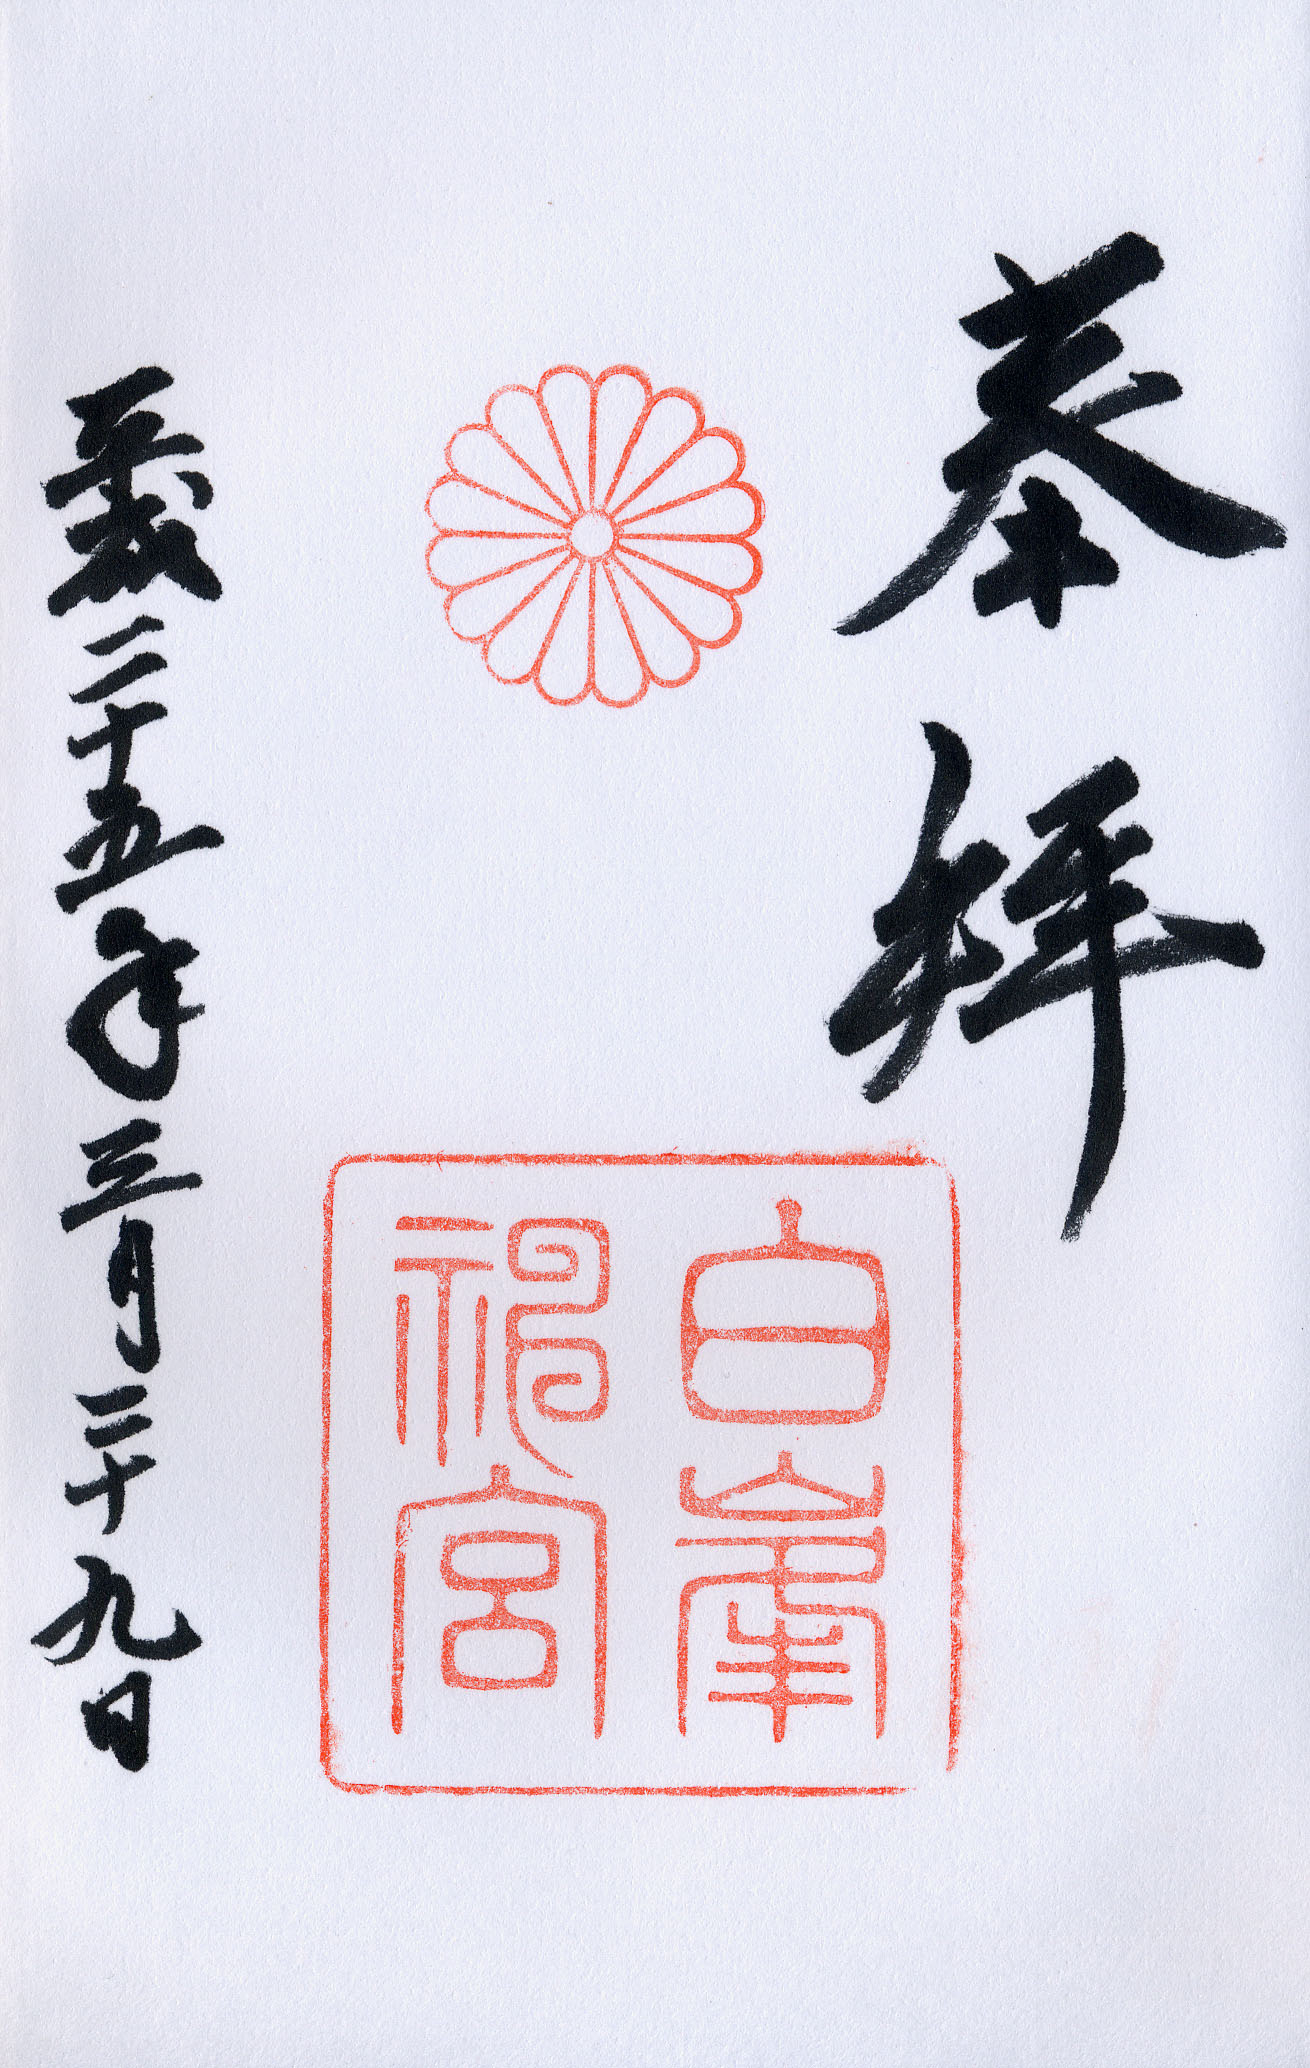 奉拝
白峯
神宮
平成二十五年三月二十九日